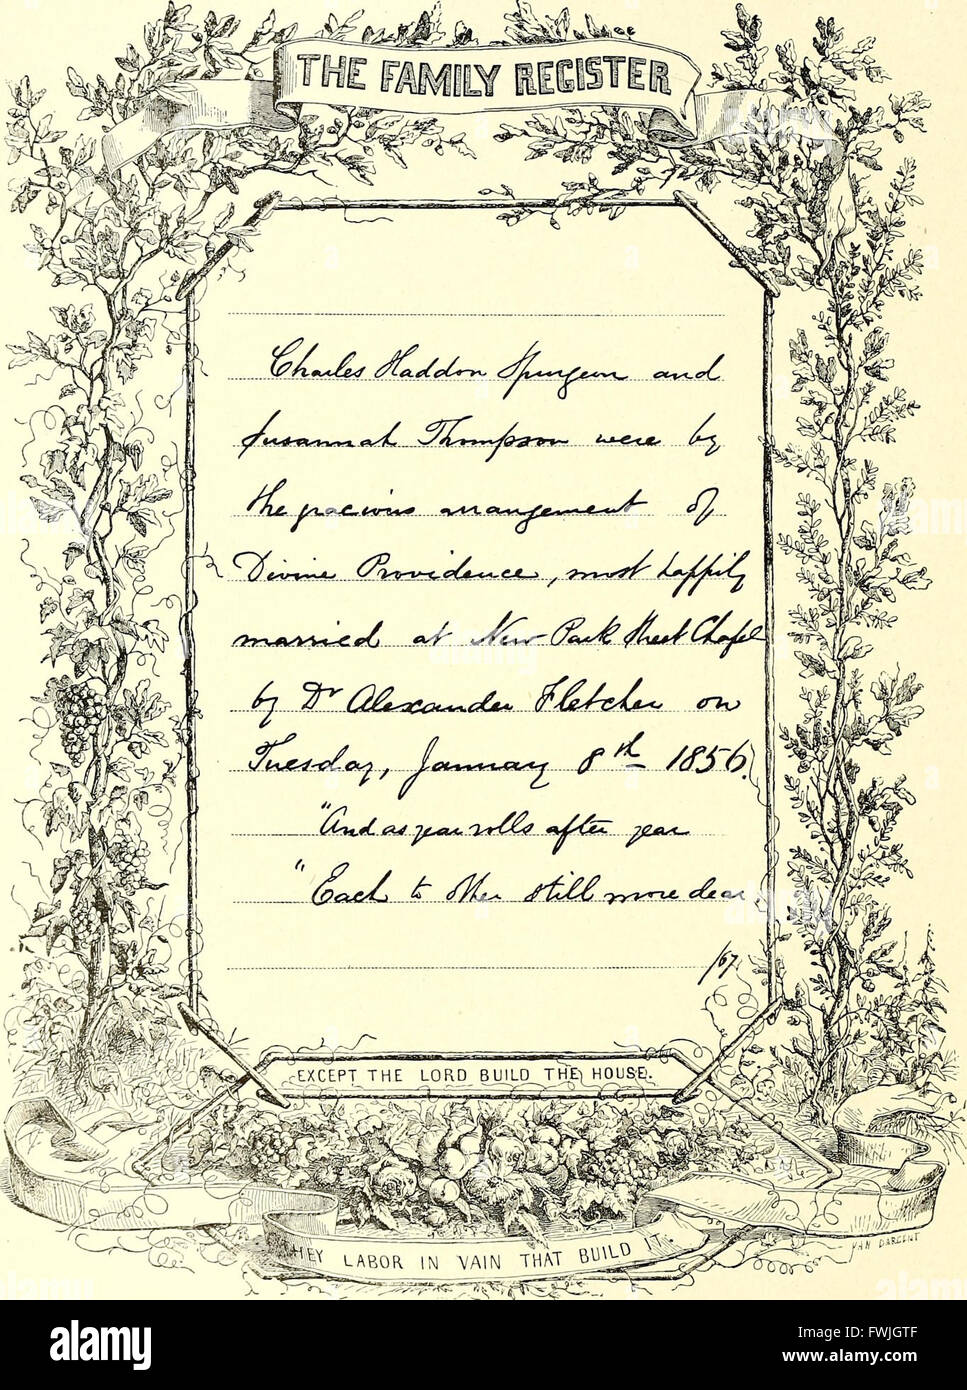 THE FAMILY REGISTER
Charles Haddon Spurgeon and
Susannah Thompson were by
the gracious arrangement of
Divine Providence, most happily
married at New Park Street Chapel
by Dr Alexander Fletcher on
Tuesday, January 8th 1856.
"And as year rolls after year
"Each to other still more dear
/67
EXCEPT THE LORD BUILD THE HOUSE.
THEY LABOR IN VAIN THAT BUILD IT.
YAN DARGENT
alamy
Image ID: FWJGTF
www.alamy.com